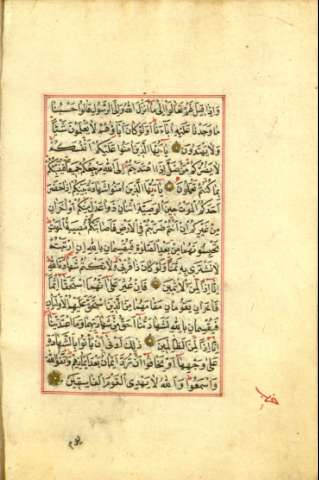 وَاِذَا قِيلَ لَهُمْ تَعَالَوْا اِلٰى مَا اَنْزَلَ اللهُ وَاِلَى الرَّسُولِ قَالُوا حَسْبُنَا
مَا وَجَدْنَا عَلَيْهِ اٰبَاءَنَا اَوَلَوْ كَانَ اٰبَاؤُهُمْ لَا يَعْلَمُونَ شَيْئًا
وَلَا يَهْتَدُونَ يَا اَيُّهَا الَّذِينَ اٰمَنُوا عَلَيْكُمْ اَنْفُسَكُمْ
لَا يَضُرُّكُمْ مَنْ ضَلَّ اِذَا اهْتَدَيْتُمْ اِلَى اللهِ مَرْجِعُكُمْ جَمِيعًا فَيُنَبِّئُكُمْ
بِمَا كُنْتُمْ تَعْمَلُونَ يَا اَيُّهَا الَّذِينَ اٰمَنُوا شَهَادَةُ بَيْنِكُمْ اِذَا حَضَرَ
اَحَدَكُمُ الْمَوْتُ حِينَ الْوَصِيَّةِ اثْنَانِ ذَوَا عَدْلٍ مِنْكُمْ اَوْ اٰخَرَانِ
مِنْ غَيْرِكُمْ اِنْ اَنْتُمْ ضَرَبْتُمْ فِي الْاَرْضِ فَاَصَابَتْكُمْ مُصِيبَةُ الْمَوْتِ
تَحْبِسُونَهُمَا مِنْ بَعْدِ الصَّلٰوةِ فَيُقْسِمَانِ بِاللهِ اِنِ ارْتَبْتُمْ
لَا نَشْتَرِي بِهِ ثَمَنًا وَلَوْ كَانَ ذَا قُرْبٰى وَلَا نَكْتُمُ شَهَادَةَ اللهِ
اِنَّا اِذًا لَمِنَ الْاٰثِمِينَ فَاِنْ عُثِرَ عَلٰى اَنَّهُمَا اسْتَحَقَّا اِثْمًا
فَاٰخَرَانِ يَقُومَانِ مَقَامَهُمَا مِنَ الَّذِينَ اسْتَحَقَّ عَلَيْهِمُ الْاَوْلَيَانِ
فَيُقْسِمَانِ بِاللهِ لَشَهَادَتُنَا اَحَقُّ مِنْ شَهَادَتِهِمَا وَمَا اعْتَدَيْنَا
اِنَّا اِذًا لَمِنَ الظَّالِمِينَ ذٰلِكَ اَدْنٰى اَنْ يَأْتُوا بِالشَّهَادَةِ
عَلٰى وَجْهِهَا اَوْ يَخَافُوا اَنْ تُرَدَّ اَيْمَانٌ بَعْدَ اَيْمَانِهِمْ وَاتَّقُوا اللهَ
وَاسْمَعُوا وَاللهُ لَا يَهْدِي الْقَوْمَ الْفَاسِقِينَ
يوم